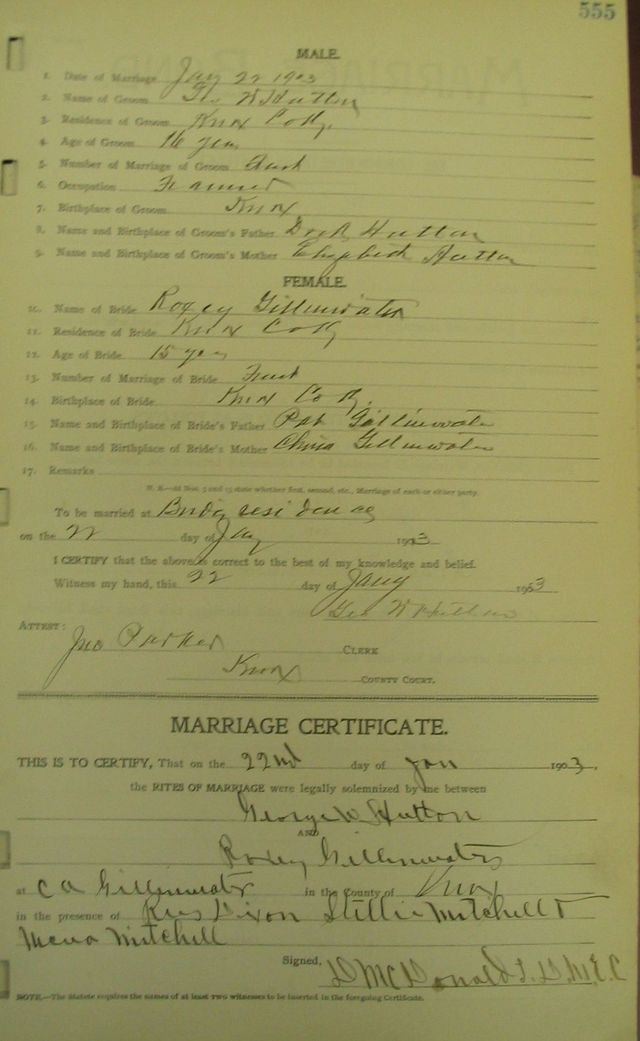 555
MALE.
1. Date of Marriage Jany 22 1903
2. Name of Groom Geo W Hutton
3. Residence of Groom Knox Co Ky.
4. Age of Groom 16 years
5. Number of Marriage of Groom First
6. Occupation Farmer
7. Birthplace of Groom Knox
8. Name and Birthplace of Groom's Father Hutton
9. Name and Birthplace of Groom's Mother Elizabeth Hutton
FEMALE.
10. Name of Bride Roxey Gillinwater
11. Residence of Bride Knox Co Ky
12. Age of Bride 15 years
13. Number of Marriage of Bride First
14. Birthplace of Bride Knox Co Ky.
15. Name and Birthplace of Bride's Father Pat Gillinwater
16. Name and Birthplace of Bride's Mother Gillinwater
17. Remarks
N. B.—At Nos. 5 and 13 state whether first, second, etc., Marriage of each or either party.
To be married at Brides residence
on the 22 day of Jany 1903
I CERTIFY that the above is correct to the best of my knowledge and belief.
Witness my hand, this 22 day of Jany 1903
Geo W Hutton
ATTEST:
Jno Parker CLERK
Knox COUNTY COURT.
MARRIAGE CERTIFICATE.
THIS IS TO CERTIFY, That on the 22nd day of Jan 1903,
the RITES OF MARRIAGE were legally solemnized by me between
George W Hutton
AND
Roxey Gillinwater
at C A Gillinwater in the County of Knox
in the presence of Dixon Mitchell &
Mitchell
Signed, McDonald
NOTE.—The Statute requires the names of at least two witnesses to be inserted in the foregoing Certificate.